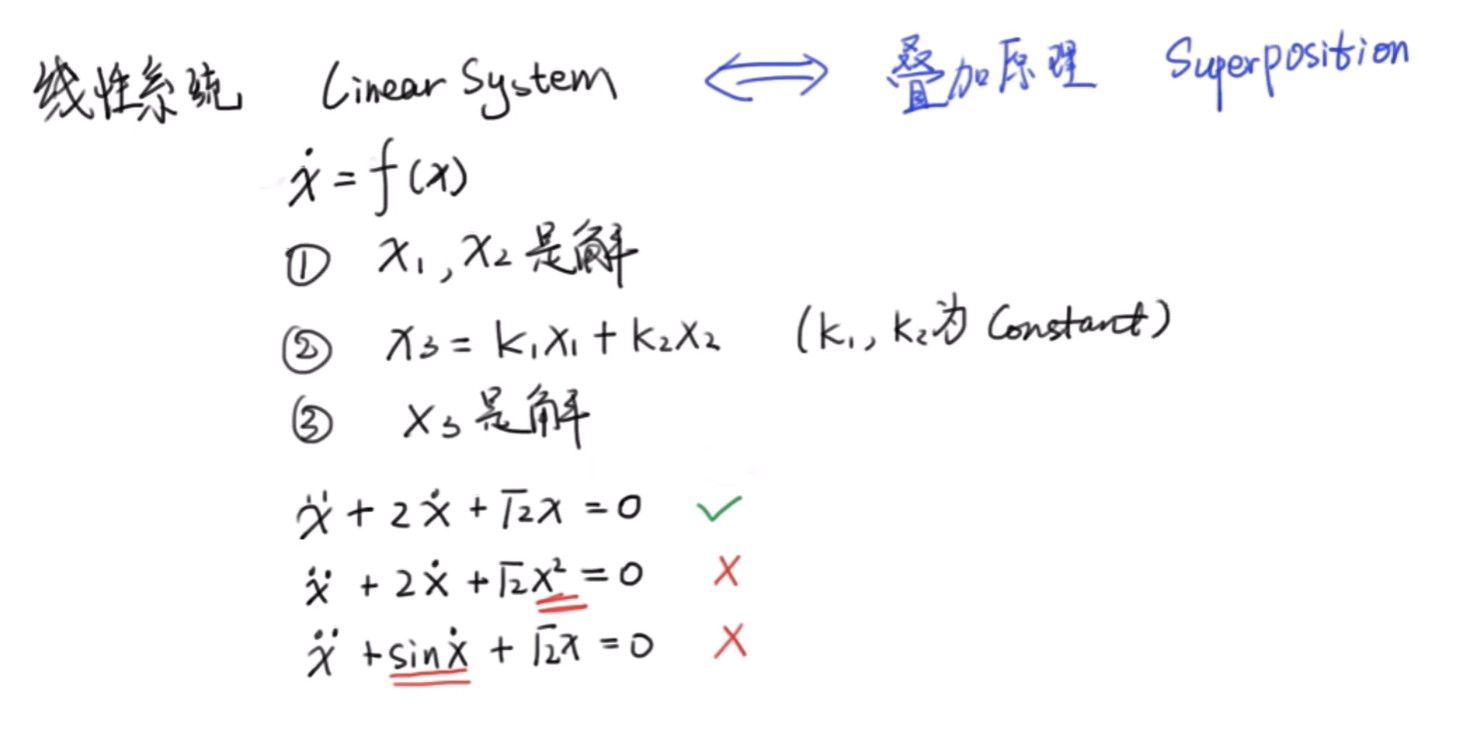 线性系统 Linear System ⟺ 叠加原理 Superposition
ẋ = f(x)
① x₁, x₂ 是解
② x₃ = k₁x₁ + k₂x₂ (k₁, k₂为 Constant)
③ x₃ 是解
ẍ + 2ẋ + √2x = 0 ✓
ẍ + 2ẋ + √2x² = 0 ✗
ẍ + sinẋ + √2x = 0 ✗